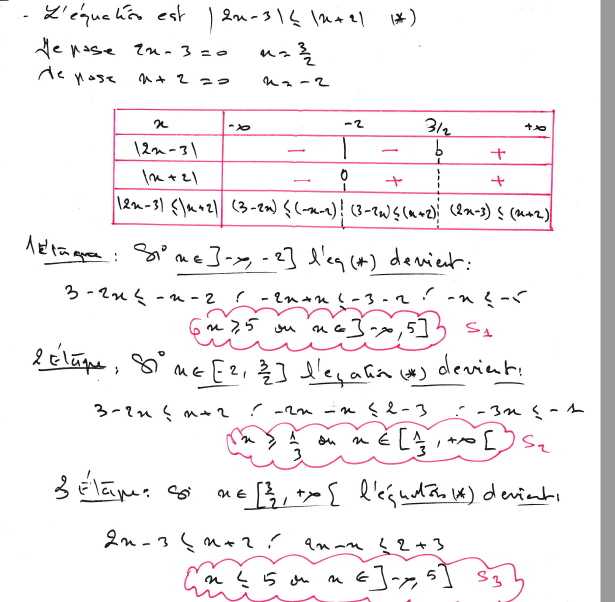 - L'équation est |2x-3| ≤ |x+2| (*)
Je pose 2x-3=0 x=3/2
Je pose x+2=0 x=-2
x -∞ -2 3/2 +∞
|2x-3| - | - 0 +
|x+2| - 0 + +
|2x-3| ≤ |x+2| (3-2x) ≤ (-x-2) (3-2x) ≤ (x+2) (2x-3) ≤ (x+2)
1 Étape : Si x∈]-∞, -2] l'eq (*) devient :
3-2x ≤ -x-2 ; -2x+x ≤ -3-2 ; -x ≤ -5
x ≥ 5 ou x∈]-∞, 5] S1
2 Étape, Si x∈[-2, 3/2] l'equation (*) devient :
3-2x ≤ x+2 ; -2x-x ≤ 2-3 ; -3x ≤ -1
x ≥ 1/3 ou x∈[1/3, +∞[ S2
3 Étape : Si x∈[3/2, +∞[ l'équation (*) devient :
2x-3 ≤ x+2 ; 2x-x ≤ 2+3
x ≤ 5 ou x∈]-∞, 5] S3